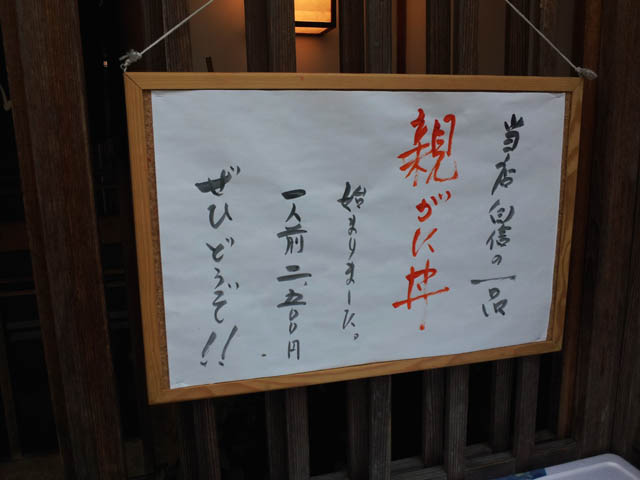 当店自信の一品
親がに丼
始まりました。
一人前二、五〇〇円
ぜひどうぞ!!